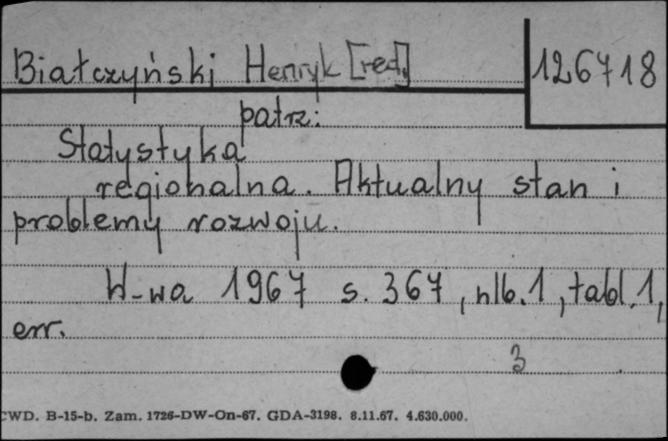 Białczyński Henryk [red.]
126718
patrz:
Statystyka
regionalna. Aktualny stan i
problemy rozwoju.
W-wa 1967 s. 367, nlb. 1, tabl. 1,
err.
3
CWD. B-15-b. Zam. 1726-DW-On-67. GDA-3198. 8.11.67. 4.630.000.